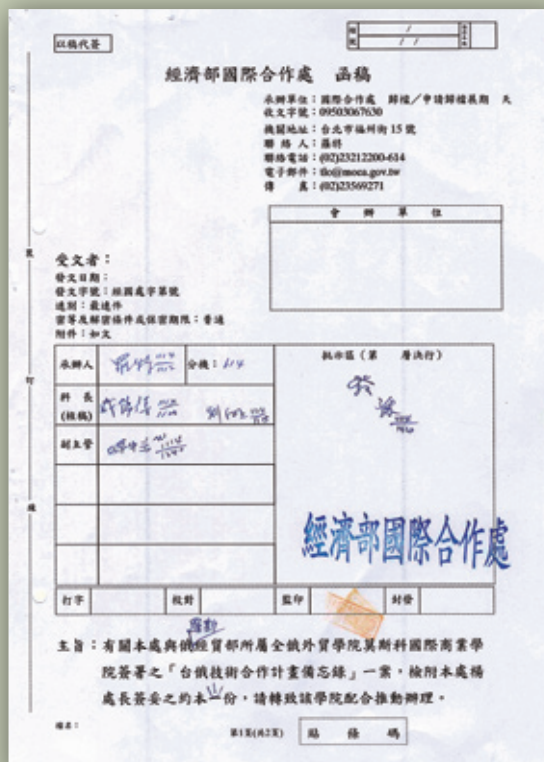 以稿代簽
經濟部國際合作處 函稿
承辦單位：國際合作處 歸檔／申請歸檔展期 天
收文字號：09503067630
機關地址：台北市福州街15號
聯絡人：羅特
聯絡電話：(02)23212200-614
電子郵件：tlo@moea.gov.tw
傳真：(02)23569271
會辦單位
裝
受文者：
發文日期：
發文字號：經國處字第號
速別：最速件
密等及解密條件或保密期限：普通
附件：如文
訂
承辦人 分機：614
批示區（第 層決行）
科長
(核稿)
副主管
線
經濟部國際合作處
打字 校對 監印 封發
羅斯
主旨：有關本處與俄經貿部所屬全俄外貿學院莫斯科國際商業學
院簽署之「台俄技術合作計畫備忘錄」一案，檢附本處楊
處長簽妥之約本一份，請轉致該學院配合推動辦理。
檔名：
第1頁(共2頁)
貼條碼